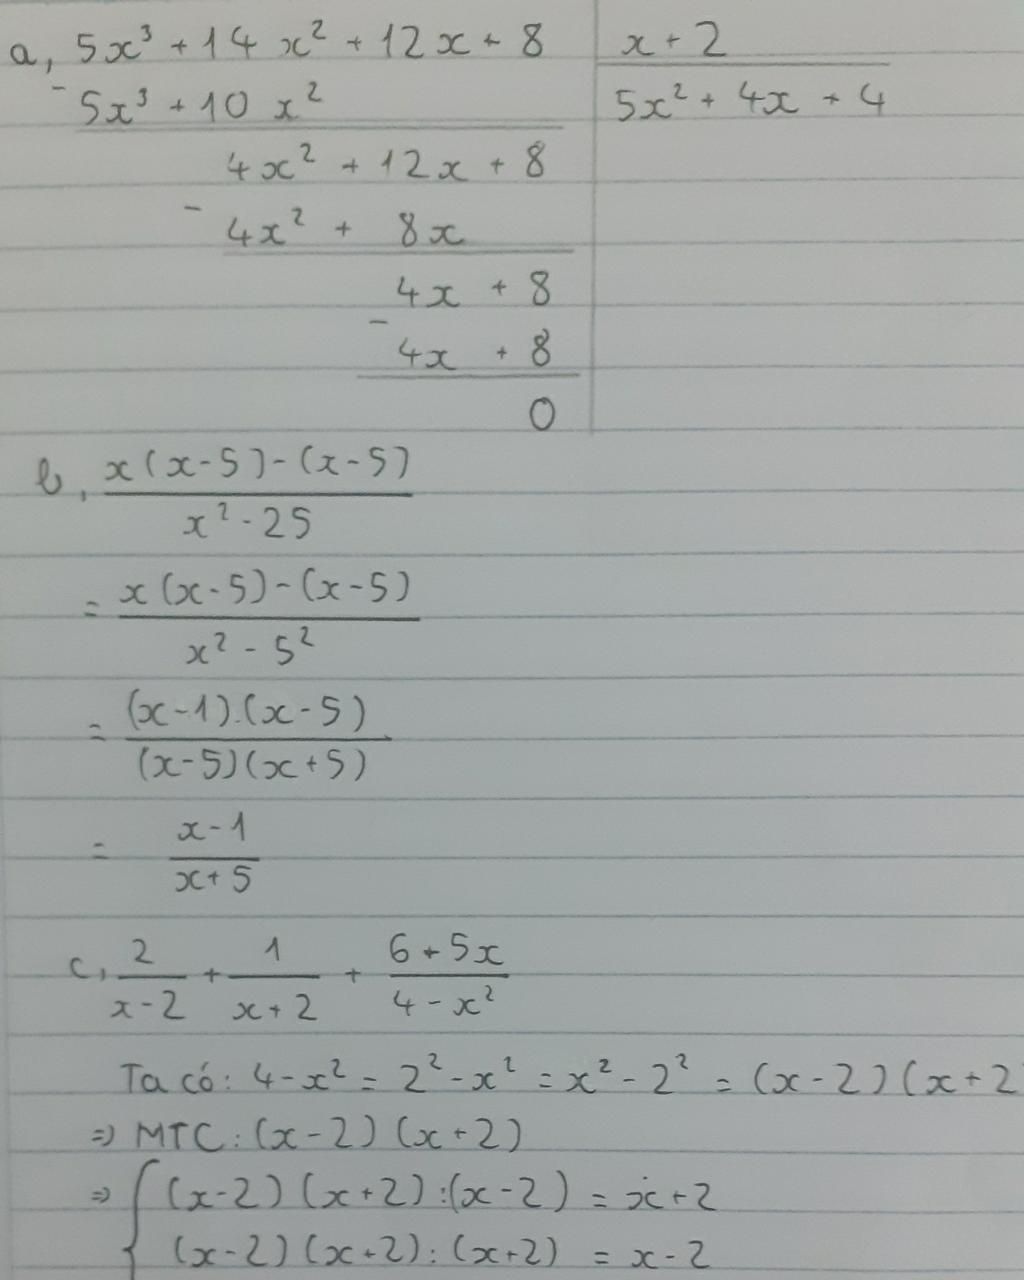 a, 5x³ + 14x² + 12x + 8 | x + 2
- 5x³ + 10x² | 5x² + 4x + 4
4x² + 12x + 8
- 4x² + 8x
4x + 8
- 4x + 8
0
b, x(x-5)-(x-5)
x²-25
= x(x-5)-(x-5)
x² - 5²
= (x-1).(x-5)
(x-5)(x+5)
= x-1
x+5
c, 2/(x-2) + 1/(x+2) + (6+5x)/(4-x²)
Ta có: 4-x² = 2²-x² = x²-2² = (x-2)(x+2
=> MTC: (x-2)(x+2)
=> { (x-2)(x+2):(x-2) = x+2
(x-2)(x+2):(x+2) = x-2